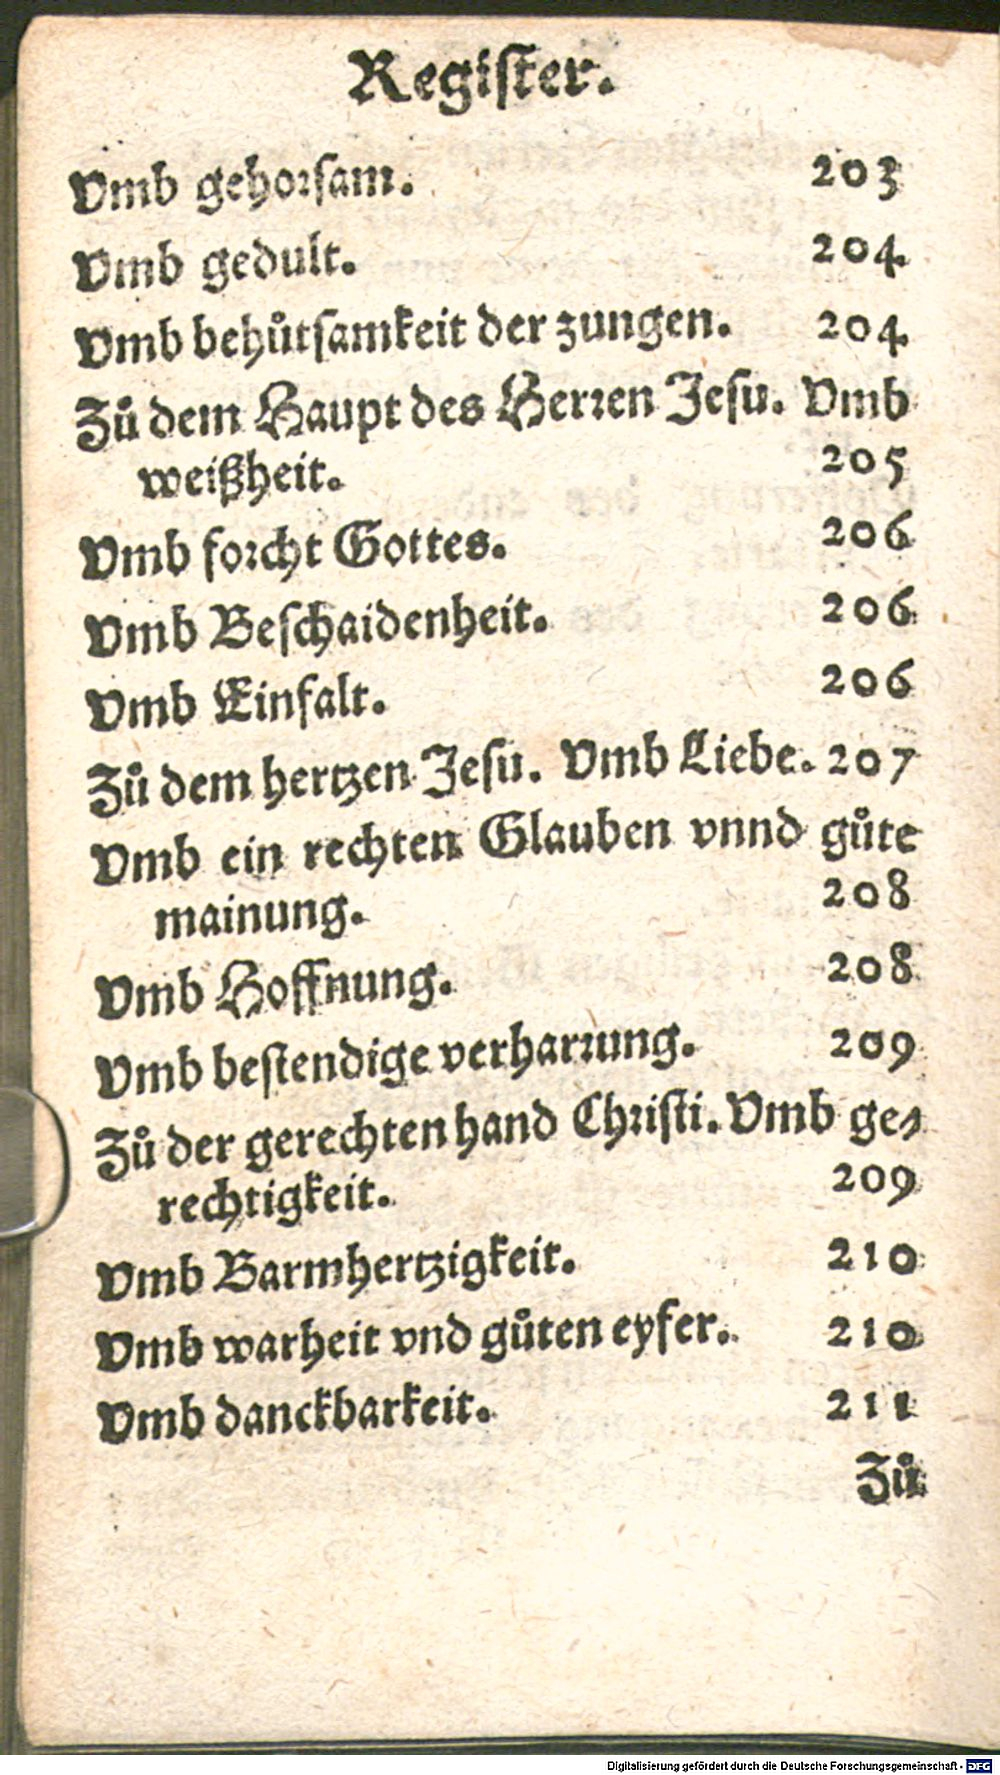 Regiſter.
Vmb gehorſam. 203
Vmb gedult. 204
Vmb behůtſamkeit der zungen. 204
Zů dem Haupt des Herren Jeſu. Vmb
weißheit. 205
Vmb forcht Gottes. 206
Vmb Beſchaidenheit. 206
Vmb Einfalt. 206
Zů dem hertzen Jeſu. Vmb Liebe. 207
Vmb ein rechten Glauben vnnd gůte
mainung. 208
Vmb Hoffnung. 208
Vmb beſtendige verharrung. 209
Zů der gerechten hand Chriſti. Vmb ge⸗
rechtigkeit. 209
Vmb Barmhertzigkeit. 210
Vmb warheit vnd gůten eyfer. 210
Vmb danckbarkeit. 211
Zů
Digitalisierung gefördert durch die Deutsche Forschungsgemeinschaft - DFG